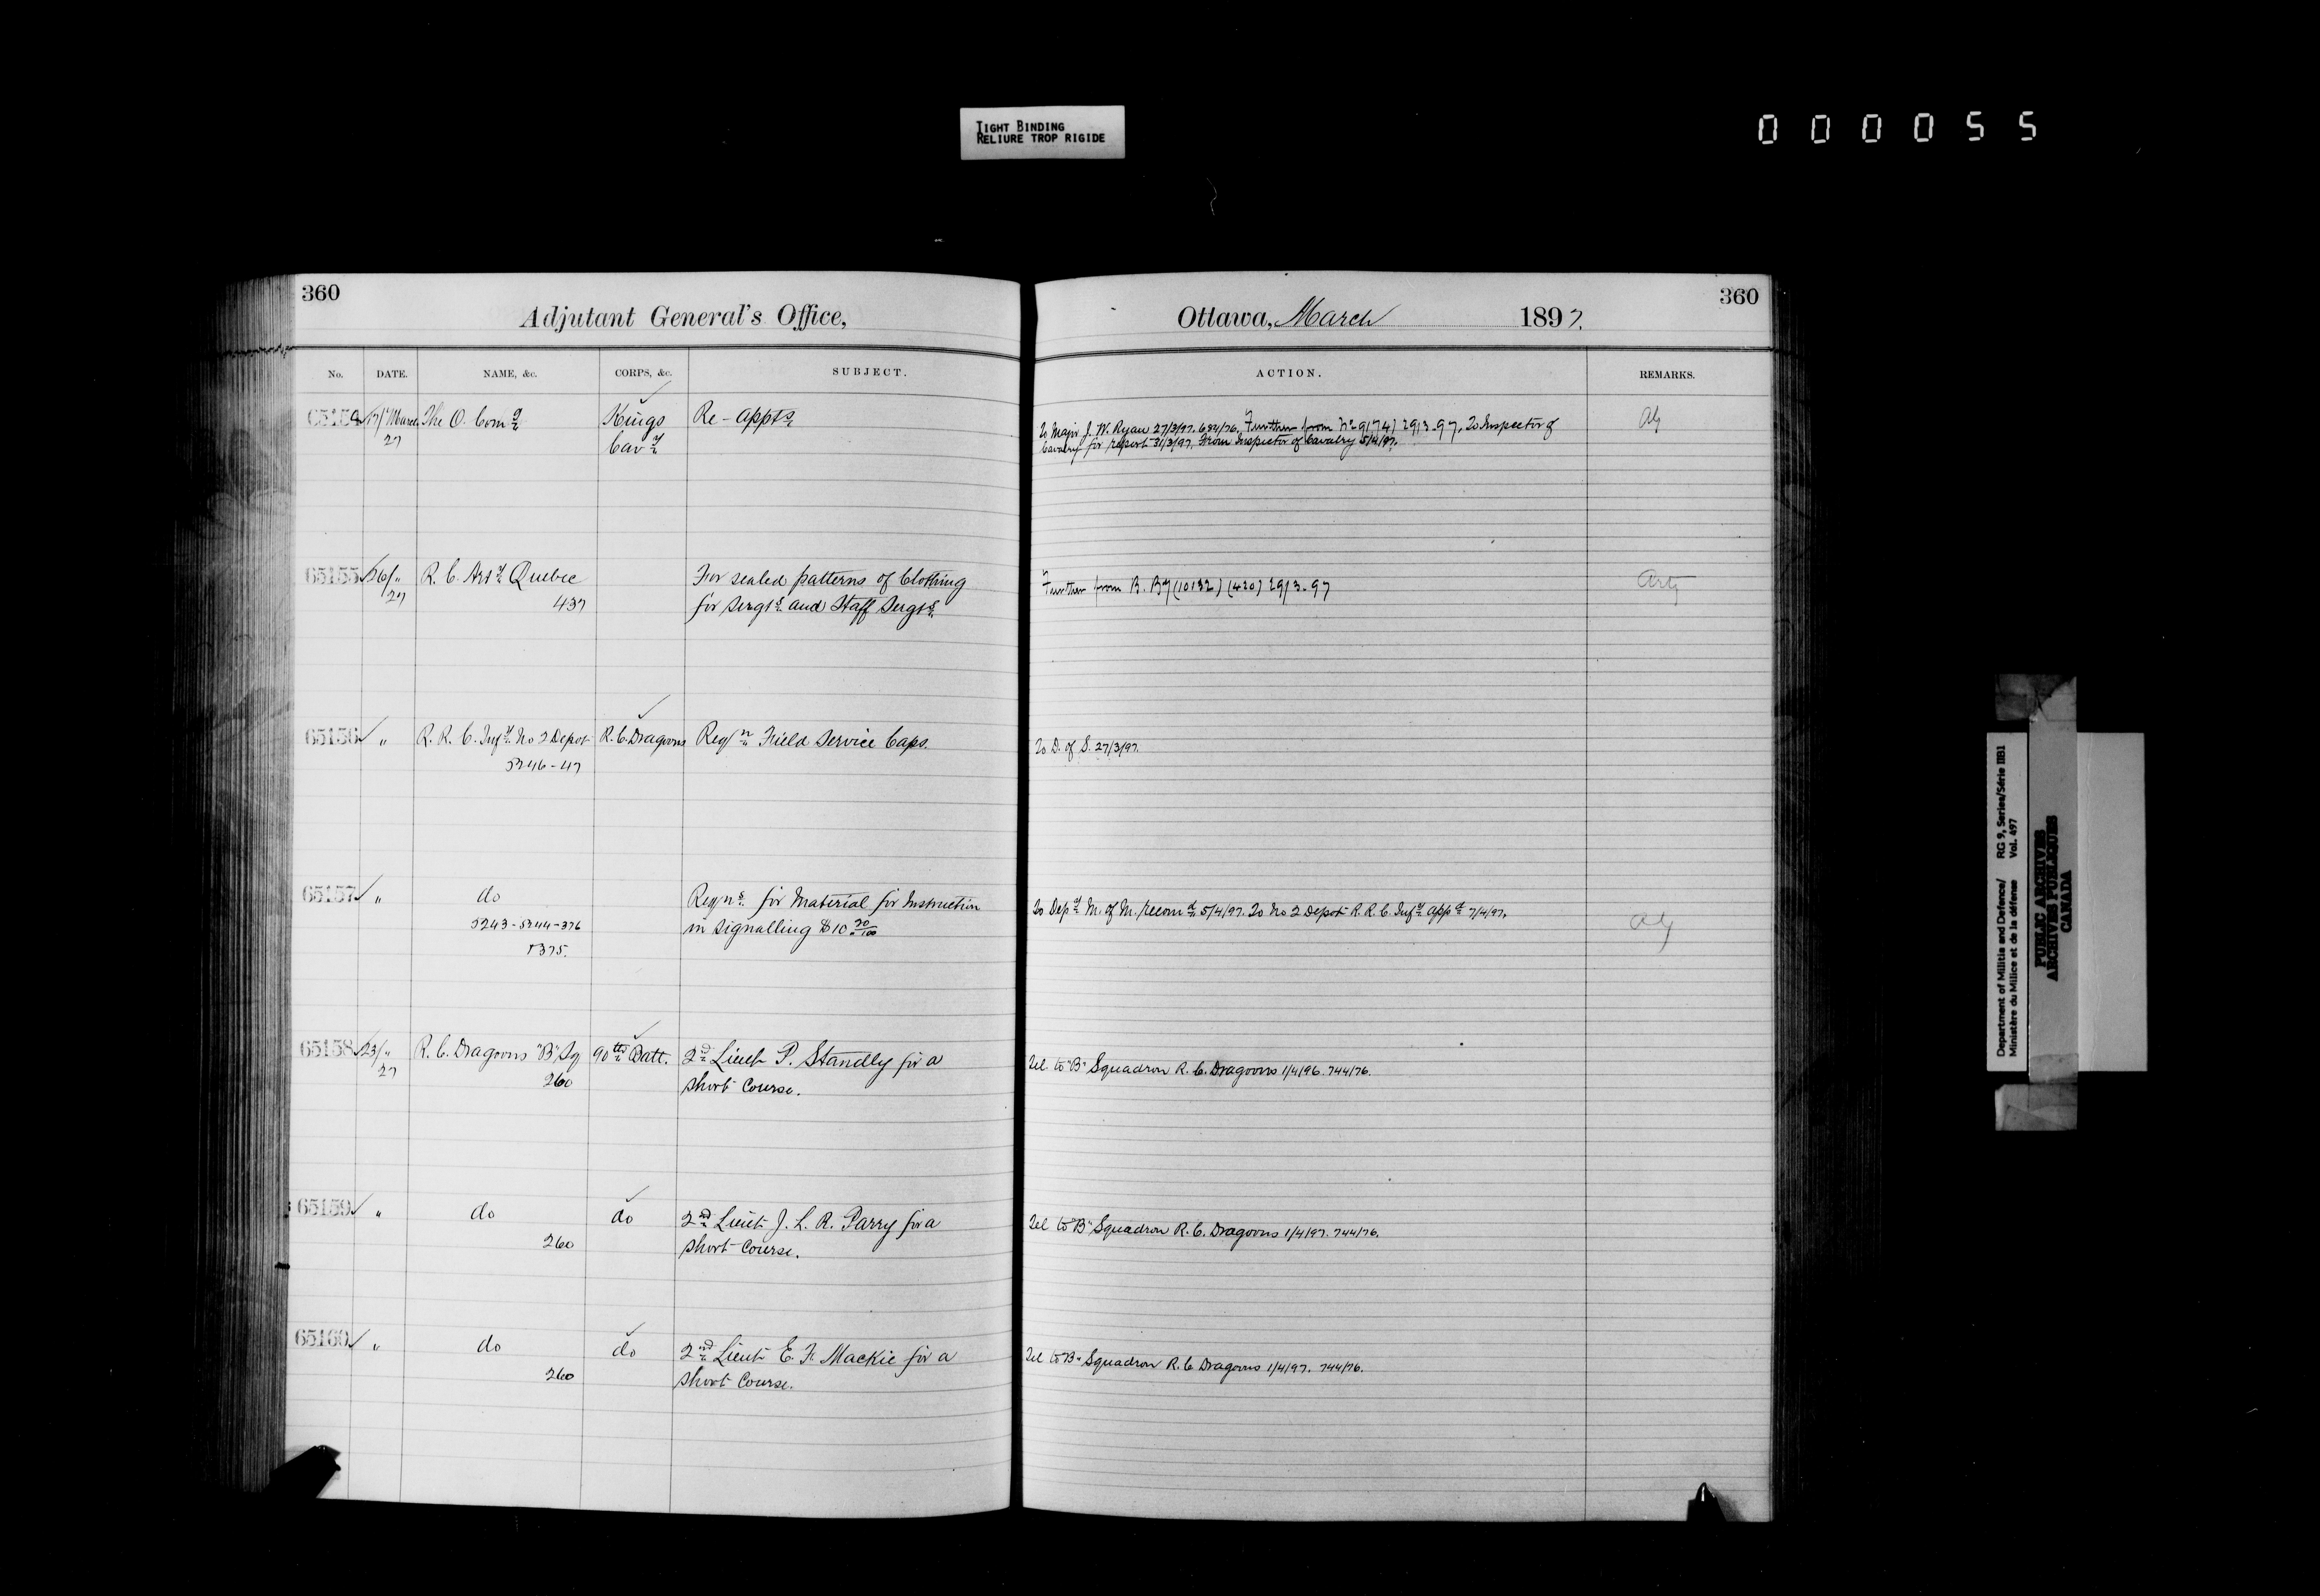 TIGHT BINDING
RELIURE TROP RIGIDE
000055
360
Adjutant General's Office,
No. DATE. NAME, &c. CORPS, &c. SUBJECT.
17/ March The O. Comdg Kings Re-appts
27 Cavy
65155 26/ " R. C. Arty Quebec For sealed patterns of Clothing
27 437 for Sergts and Staff Sergts
65156 " R. R. C. Infy No 2 Depot R. C. Dragoons Reqn Field Service Caps.
5246-47
65157 " do Reqns for Material for Instruction
5243-5244-376 in Signalling $10 20/100
5375.
65158 23/ " R. C. Dragoons "B" Sq 90th Batt. 2nd Lieut P. Standly for a
27 260 Short Course.
65159 " do do 2nd Lieut J. L. R. Parry for a
260 Short Course.
65160 " do do 2nd Lieut E. F. Mackie for a
260 Short Course.
360
Ottawa, March 1897.
ACTION. REMARKS.
To Major J. W. Ryan 27/3/97. 682/76. Further from No 9174) 29/3-97. To Inspector of
Cavalry for report 31/3/97. From Inspector of Cavalry 5/4/97.
Further from R. By (10132) (420) 29/3-97 Arty
To D. of S. 27/3/97.
To Depy M. of M. recomd 5/4/97. To No 2 Depot R. R. C. Infy appd 7/4/97.
Tel to "B" Squadron R. C. Dragoons 1/4/96. 744/76.
Tel to "B" Squadron R. C. Dragoons 1/4/97. 744/76.
Tel to "B" Squadron R. C. Dragoons 1/4/97. 744/76.
Department of Militia and Defence/ RG 9, Series/Série IIB1
Ministère du Milice et de la défense Vol. 497
PUBLIC ARCHIVES
ARCHIVES PUBLIQUES
CANADA